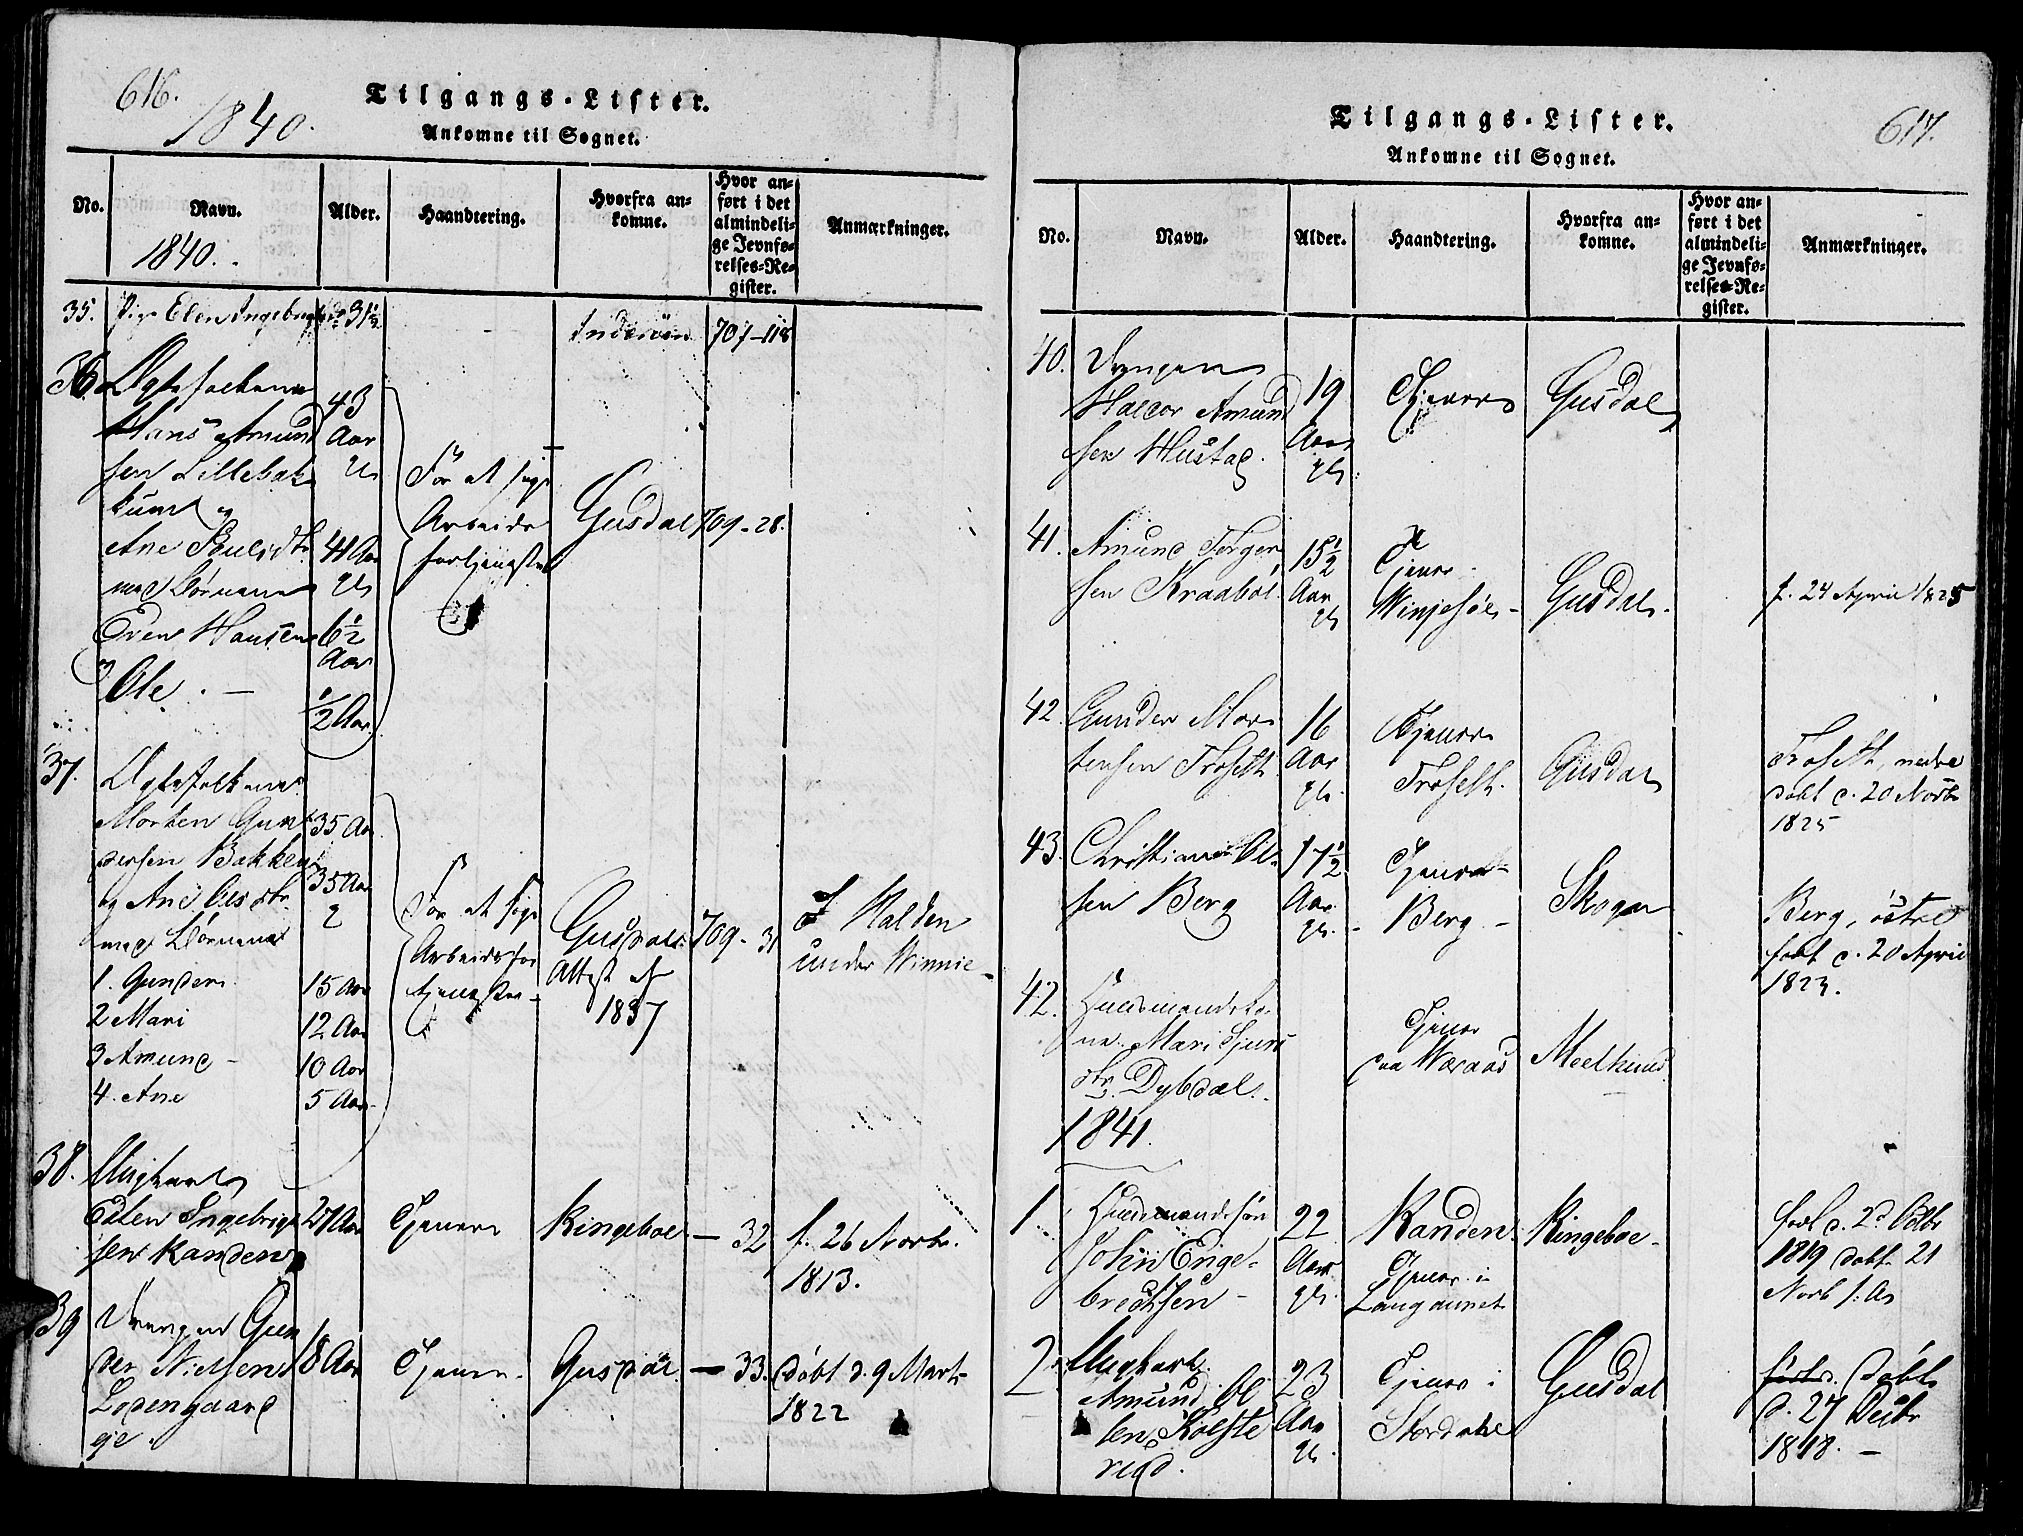 616.
1840.
Tilgangs-Lister.
Ankomne til Sognet.
No.
Navn.
Alder.
Haandtering.
Hvorfra an-
komne.
Hvor an-
ført i det
almindeli-
ge Jevnfø-
relses-Re-
gister.
Anmærkninger.
1840.
35. Pige Elen Ingebrigtsdtr 31½
Inderøen
701-118
36. Ægtefolkene
Hans Amund
sen Lillebak
kum og
Ane Poulsdtr
med Børnene
Even Hansen
Ole.
43
Aar
41 Aar
6½
Aar
½ Aar
For at søge
Arbeids
fortjeneste
Gusdal
709-28.
37. Ægtefolkene
Morten Gun
dersen Bakken
og Ane Olsdtr
med Børnene
1. Gunder
2 Mari
3 Amund
4. Ane
35 Aar
35 Aar
15 Aar
12 Aar
10 Aar
5 Aar
For at søge
Arbeidsfor
tjeneste
Gusdal
Attest af
1837
709-31
I Halden
under Winnie
38. Ungkarl
Esten Ingebrigt
sen Randen
27 Aar
Tjener
Ringeboe
32
f. 26 Novbr.
1813.
39 Drengen Gun
der Nielsen
Losengaard
eje.
18 Aar
Tjener
Gusdal
33.
døbt d. 9 Marts
1822
Tilgangs-Lister.
617.
Ankomne til Sognet.
No.
Navn.
Alder.
Haandtering.
Hvorfra an-
komne.
Hvor an-
ført i det
almindeli-
ge Jevnfø-
relses-Re-
gister.
Anmærkninger.
40. Drengen
Halvor Amund
sen Hustad.
19
Aar
gl.
Tjener
Gusdal
41. Amund Torger
sen Kraabøl.
15½
Aar
gl.
Tjener
Gusdal
f. 24 April 1825
42. Gunder Mor
tensen Troseth
16
Aar
gl.
Tjener
Troseth.
Gusdal
Troseth, nedre
døbt d. 20 Novbr
1825
43. Christian Ol
sen Berg
17½
Aar
gl.
Tjener
Berg
Skogn
Berg, østre
født d. 20 April
1823.
42. Huusmandsko
ne Mari Sjurs
dtr. Dybdal.
Tjener
paa Weraas
Meelhuus
1841.
1 Huusmandssøn
John Enge-
brechtsen
22
Aar
gl.
Randen
Tjener i
Langaunet
Ringeboe
født d. 2d Octbr
1819 døbt 21
Novb s: A
2. Ungkarl
Amund Ol
sen Kolste
rud.
23
Aar
gl.
Tjener i
Stordahl
Gusdal
døbt
d. 27 Decbr
1818.